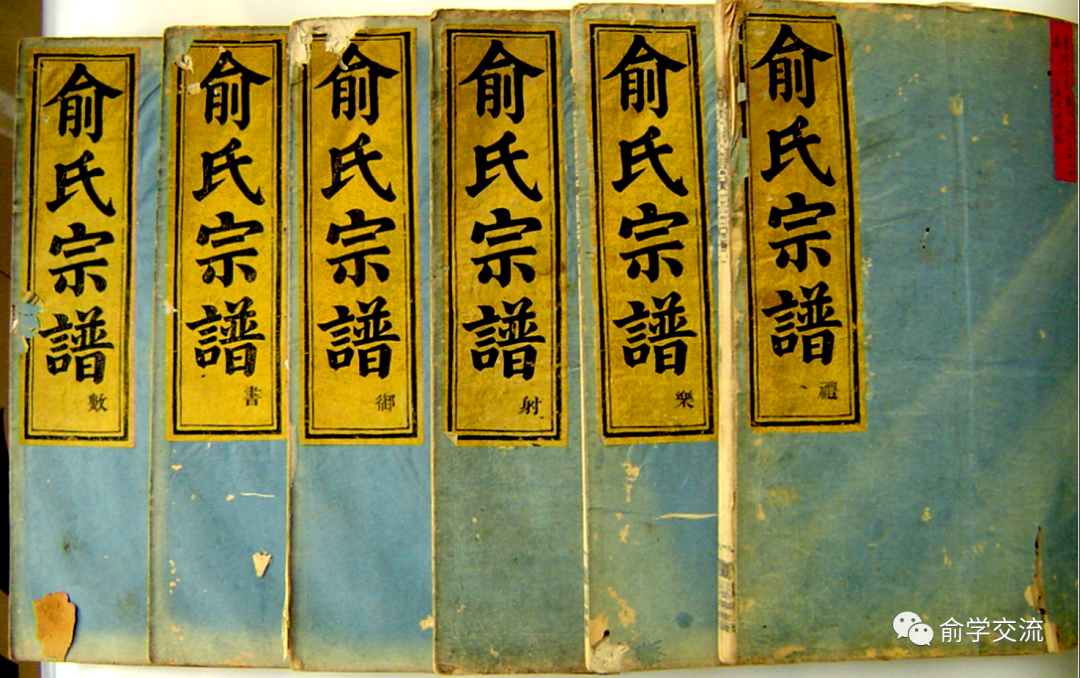 俞氏宗譜
禮
俞氏宗譜
樂
俞氏宗譜
射
俞氏宗譜
御
俞氏宗譜
書
俞氏宗譜
數
俞学交流